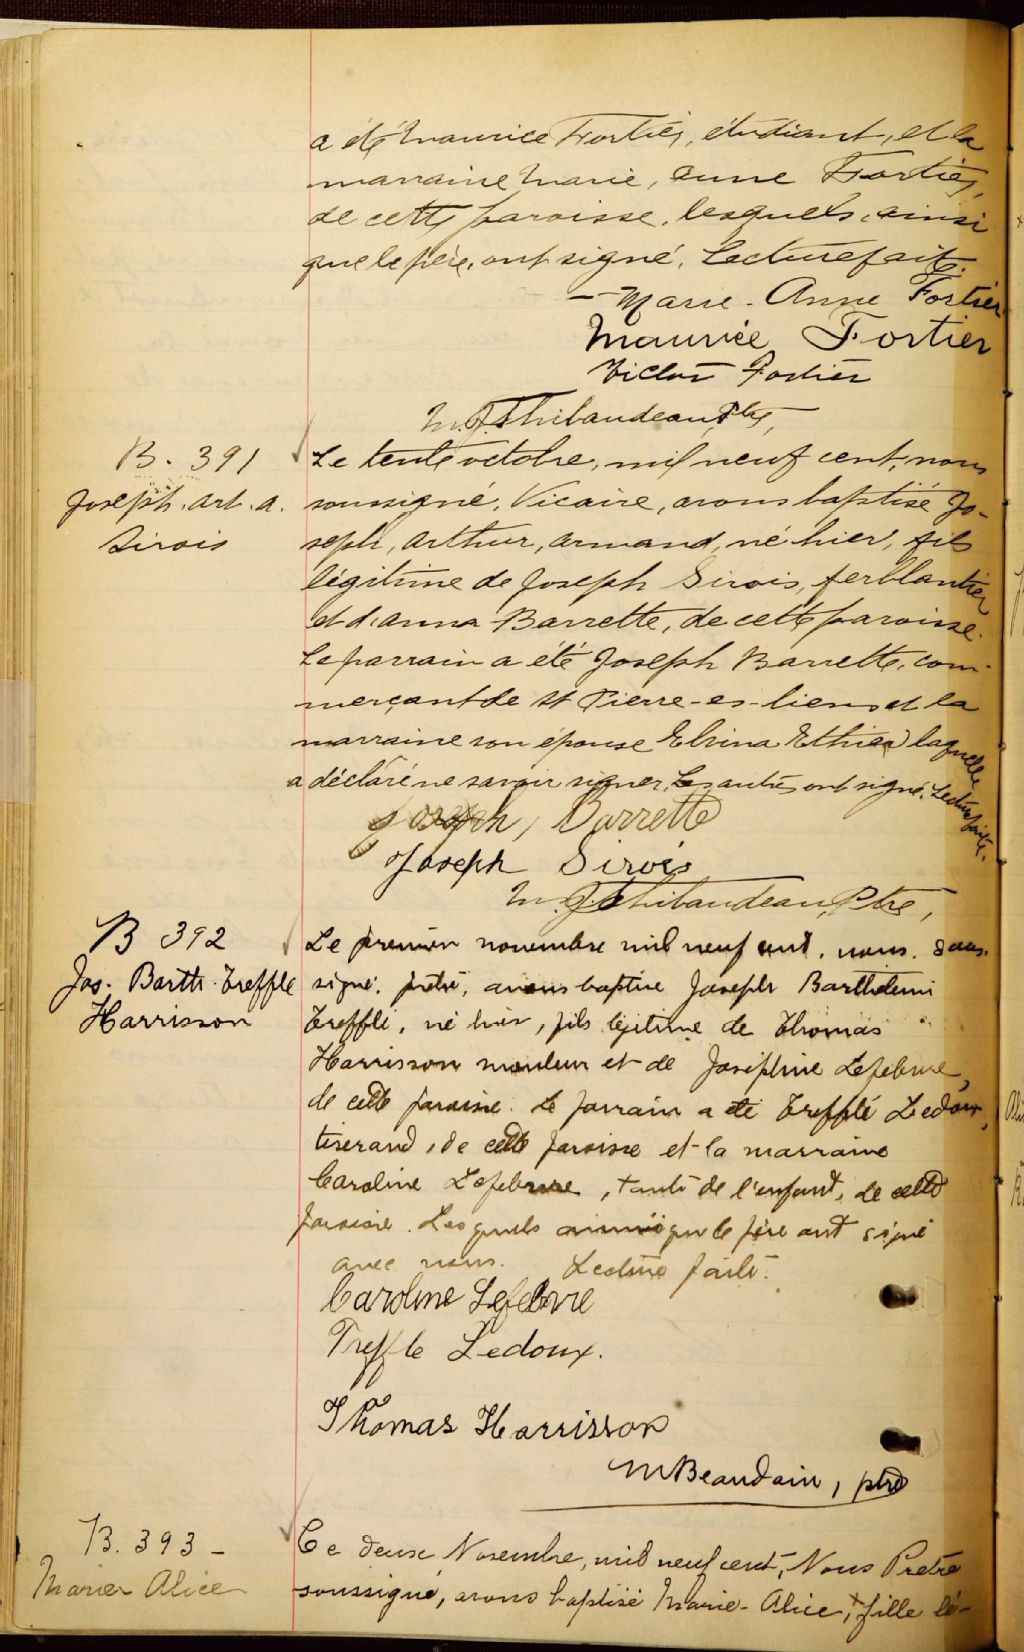 a été Maurice Fortier, étudiant, et la
marraine Marie, Anne Fortier,
de cette paroisse, lesquels, ainsi
que le père, ont signé. Lecture faite.
- Marie-Anne Fortier
Maurice Fortier
Victor Fortier
M. J. Thibaudeau, Ptre,
B. 391
Joseph. Art. A.
Sirois
Le trente octobre, mil neuf cent, nous
soussigné, Vicaire, avons baptisé Jo-
seph, Arthur, Armand, né hier, fils
légitime de Joseph Sirois, ferblantier
et d'Anna Barrette, de cette paroisse.
Le parrain a été Joseph Barrette, com-
merçant de St Pierre-es-liens et la
marraine son épouse Elvina Ethier laquelle
a déclaré ne savoir signer. Les autres ont signé. Lecture faite.
Joseph Barrette
Joseph Sirois
M. J. Thibaudeau, Ptre,
B 392
Jos. Barth. Trefflé
Harrisson
Le premier novembre mil neuf cent, nous, sous-
signé, prêtre, avons baptisé Joseph Barthelemi
Trefflé, né hier, fils légitime de Thomas
Harrisson mouleur et de Joséphine Lefebvre,
de cette paroisse. Le parrain a été Trefflé Ledoux,
tisserand, de cette paroisse et la marraine
Caroline Lefebvre, tante de l'enfant, de cette
paroisse. Lesquels ainsi que le père ont signé
avec nous. Lecture faite.
Caroline Lefebvre
Treffle Ledoux.
Thomas Harrisson
M Beaudoin, ptre
B. 393 -
Marie Alice
Le deux Novembre, mil neuf cent, Nous Prêtre
soussigné, avons baptisé Marie-Alice, + fille lé-